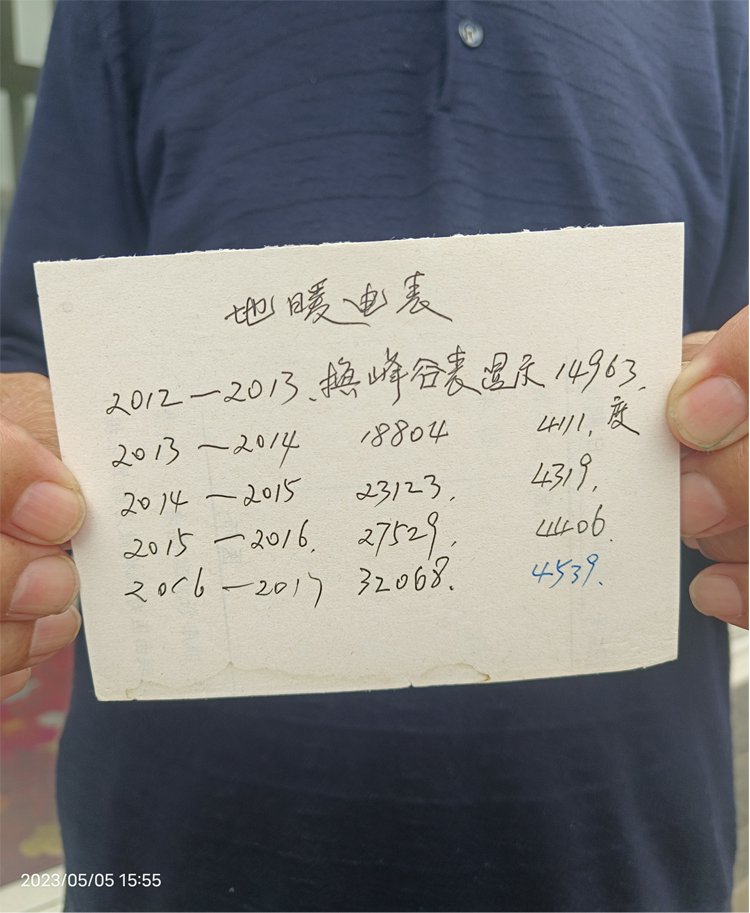 地暖电表
2012—2013、换峰谷表显示14963、
2013—2014 18804 4111、度
2014—2015 23123、 4319、
2015—2016、 27529、 4406、
2016—2017 32068、 4539、
2023/05/05 15:55